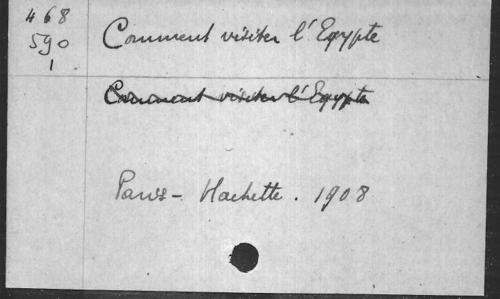 468
590
1
Comment visiter l'Egypte
Comment visiter l'Egypte
Paris - Hachette. 1908